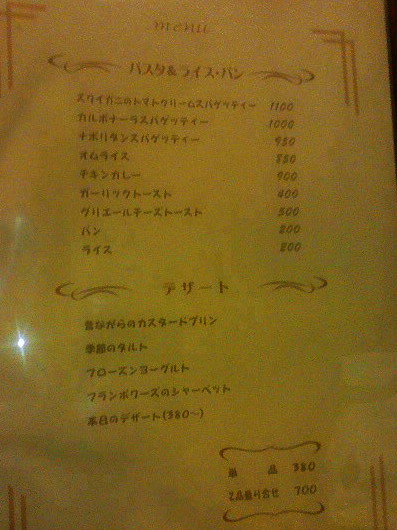 menu
パスタ&ライス・パン
ズワイガニのトマトクリームスパゲッティー 1100
カルボナーラスパゲッティー 1000
ナポリタンスパゲッティー 950
オムライス 850
チキンカレー 900
ガーリックトースト 400
グリエールチーズトースト 500
パン 200
ライス 200
デザート
昔ながらのカスタードプリン
季節のタルト
フローズンヨーグルト
フランボワーズのシャーベット
本日のデザート(380～)
単品 380
2品盛り合せ 700